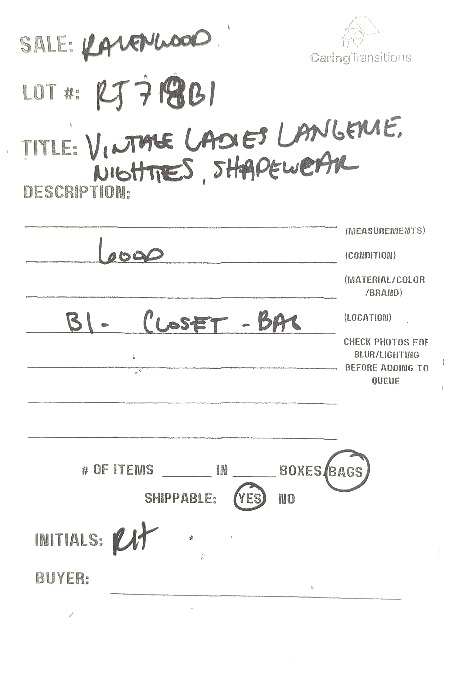 SALE: RAVENWOOD
CaringTransitions
LOT #: RJ718B1
TITLE: VINTAGE LADIES LANGERIE,
NIGHTIES, SHAPEWEAR
DESCRIPTION:
(MEASUREMENTS)
GOOD (CONDITION)
(MATERIAL/COLOR
/BRAND)
B1- CLOSET - BAG (LOCATION)
CHECK PHOTOS FOR
BLUR/LIGHTING
BEFORE ADDING TO
QUEUE
# OF ITEMS ______ IN _____ BOXES/BAGS
SHIPPABLE: YES NO
INITIALS: RH
BUYER: